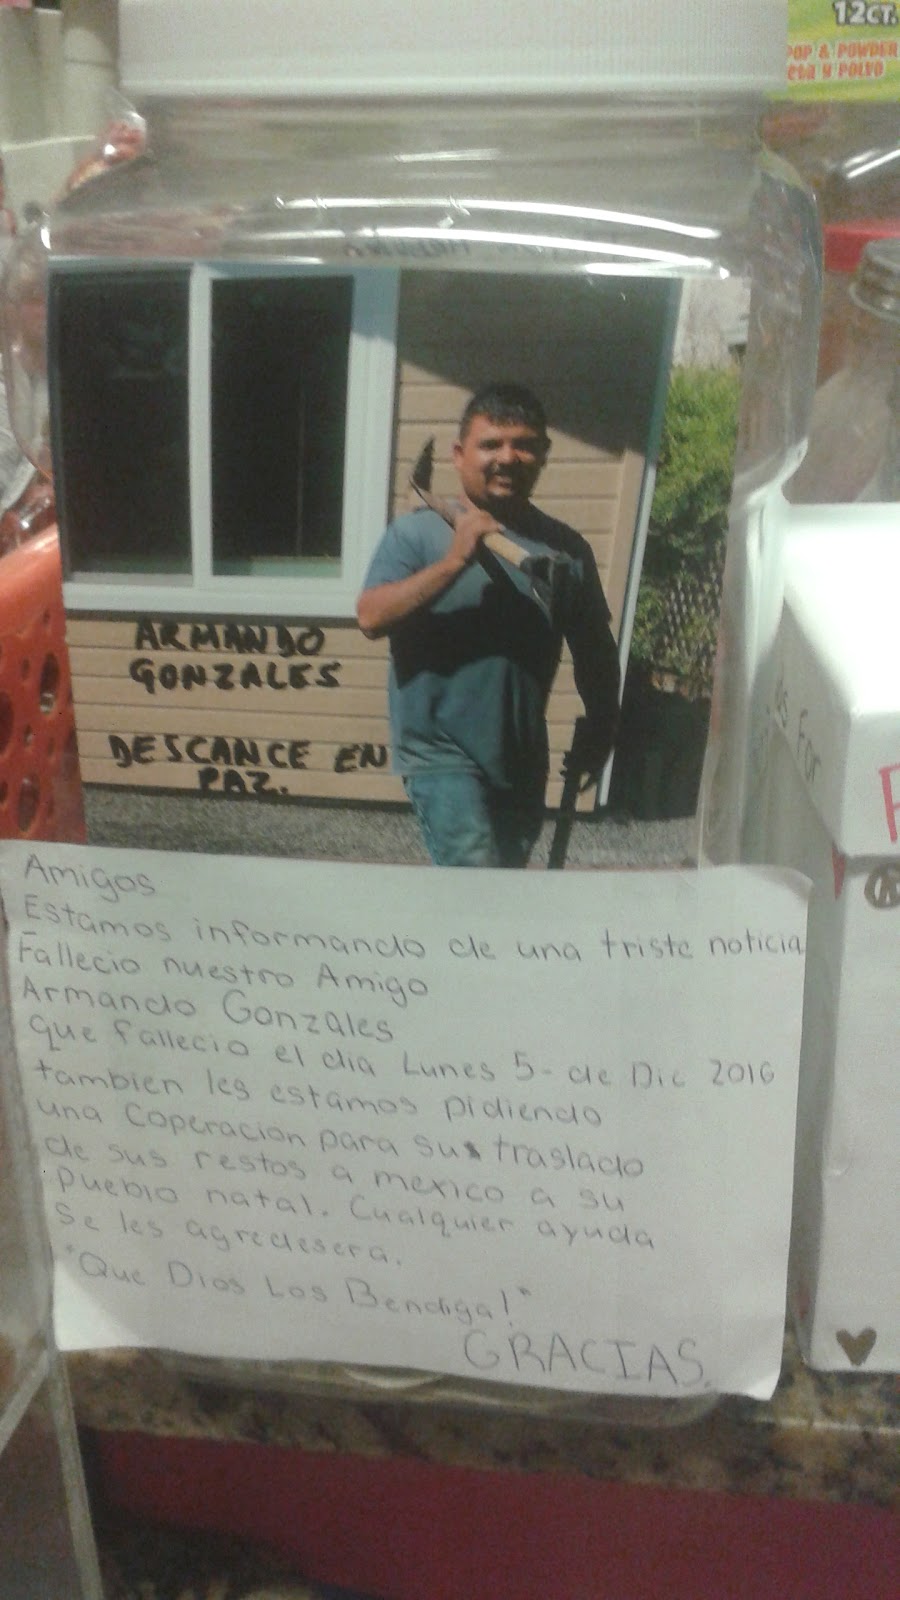 12CT.
POP & POWDER
eta y POLVO
ARMANDO
GONZALES
DESCANCE EN
PAZ.
Amigos
Estamos informando de una triste noticia
Fallecio nuestro Amigo
Armando Gonzales
que fallecio el dia Lunes 5- de Dic 2016
tambien les estamos pidiendo
una Coperacion para su traslado
de sus restos a mexico a su
pueblo natal. Cualquier ayuda
se les agredesera.
"Que Dios Los Bendiga!"
GRACIAS.
For
R